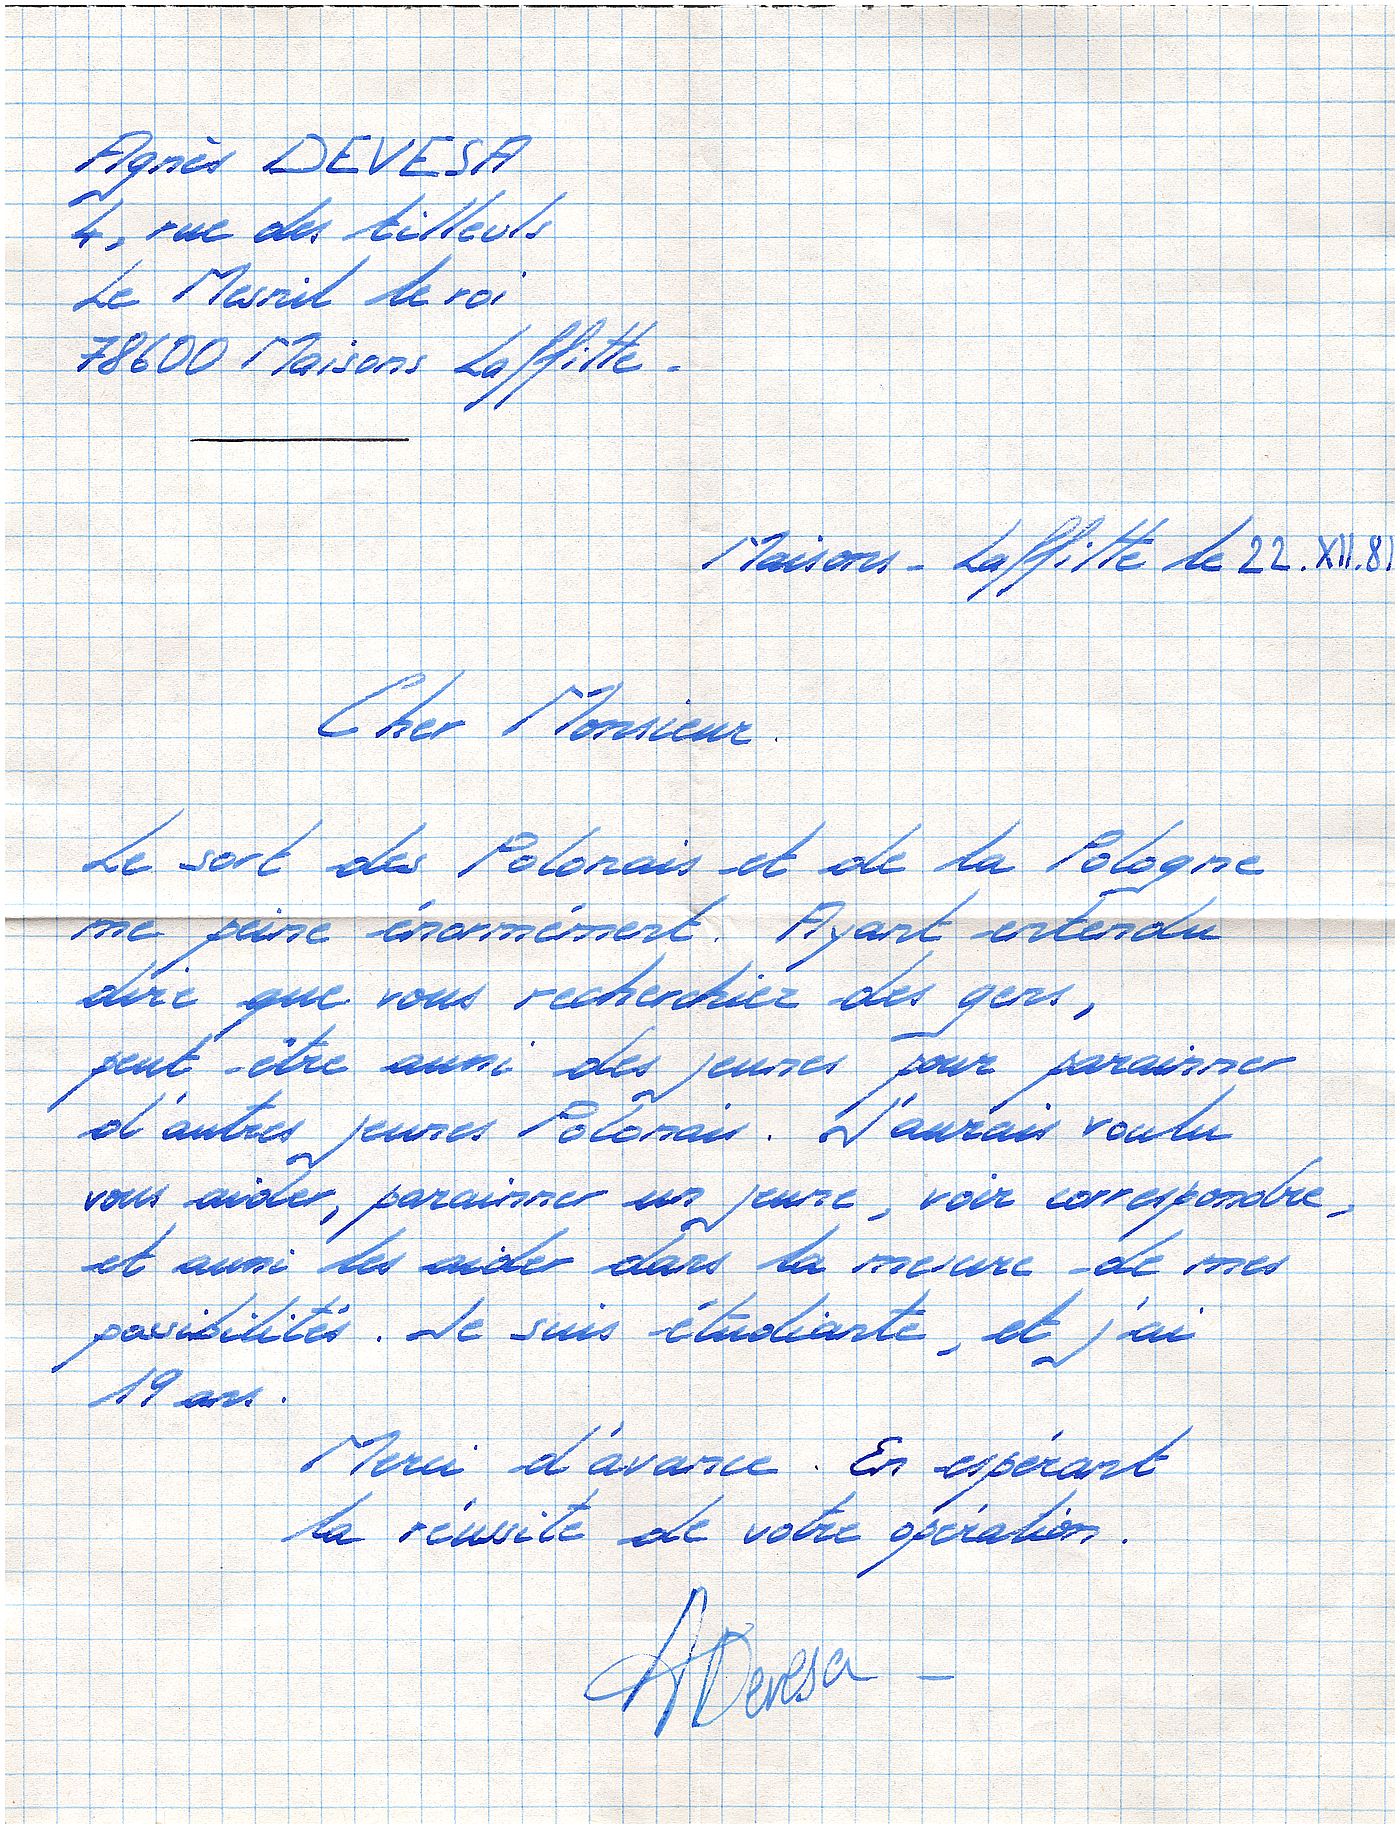 Agnès DEVESA
4, rue des tilleuls
Le Mesnil le roi
78600 Maisons Laffitte -
Maisons - Laffitte le 22.XII.81
Cher Monsieur.
Le sort des Polonais et de la Pologne
me peine énormément. Ayant entendu
dire que vous recherchiez des gens,
peut-être aussi des jeunes pour parainner
d'autres jeunes Polonais. J'aurais voulu
vous aider, parainner un jeune, voir correspondre,
et aussi les aider dans la mesure de mes
possibilités. Je suis étudiante, et j'ai
19 ans.
Merci d'avance. En espérant
la réussite de votre opération.
ADevesa -